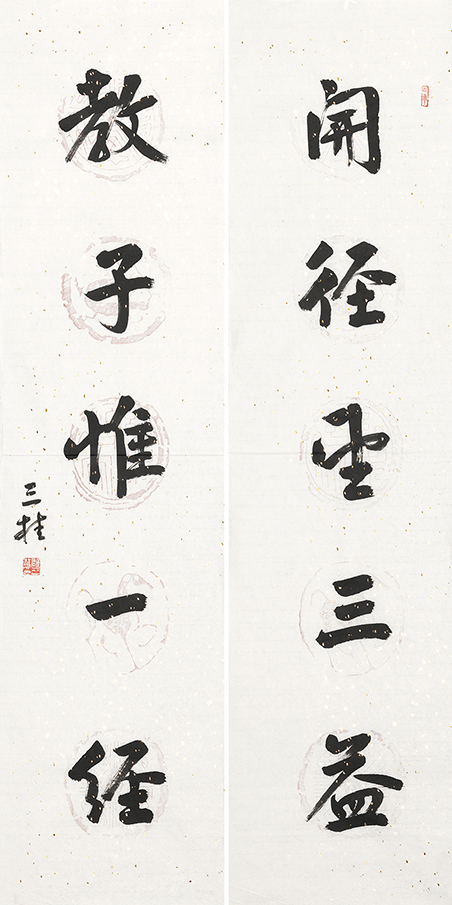 開徑望三益
教子惟一經
三桂